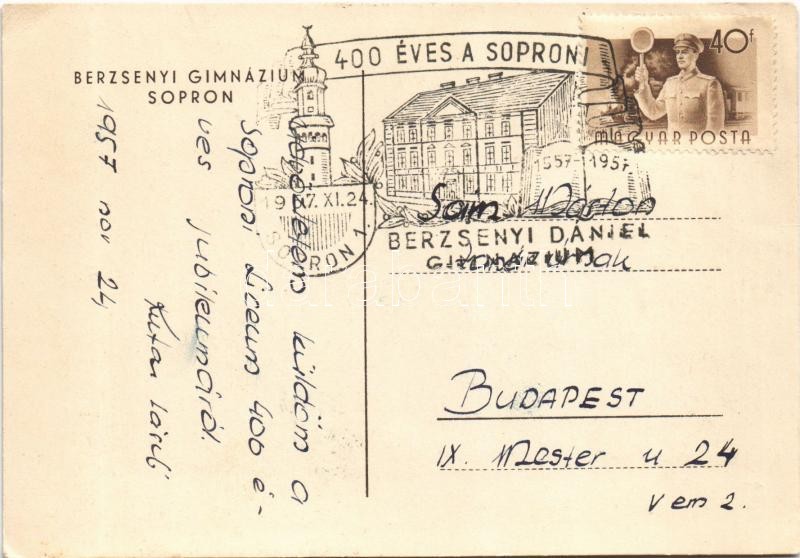 BERZSENYI GIMNÁZIUM
SOPRON
400 ÉVES A SOPRONI
1557-1957
BERZSENYI DÁNIEL
GIMNÁZIUM
1957.XI.24.
SOPRON 1
40f
MAGYAR POSTA
küldöm a
Soproni Líceum 400 é-
ves jubileumáról.
Kutas László
1957 nov 24
Sain Márton
BUDAPEST
IX. Mester u 24
V em 2.